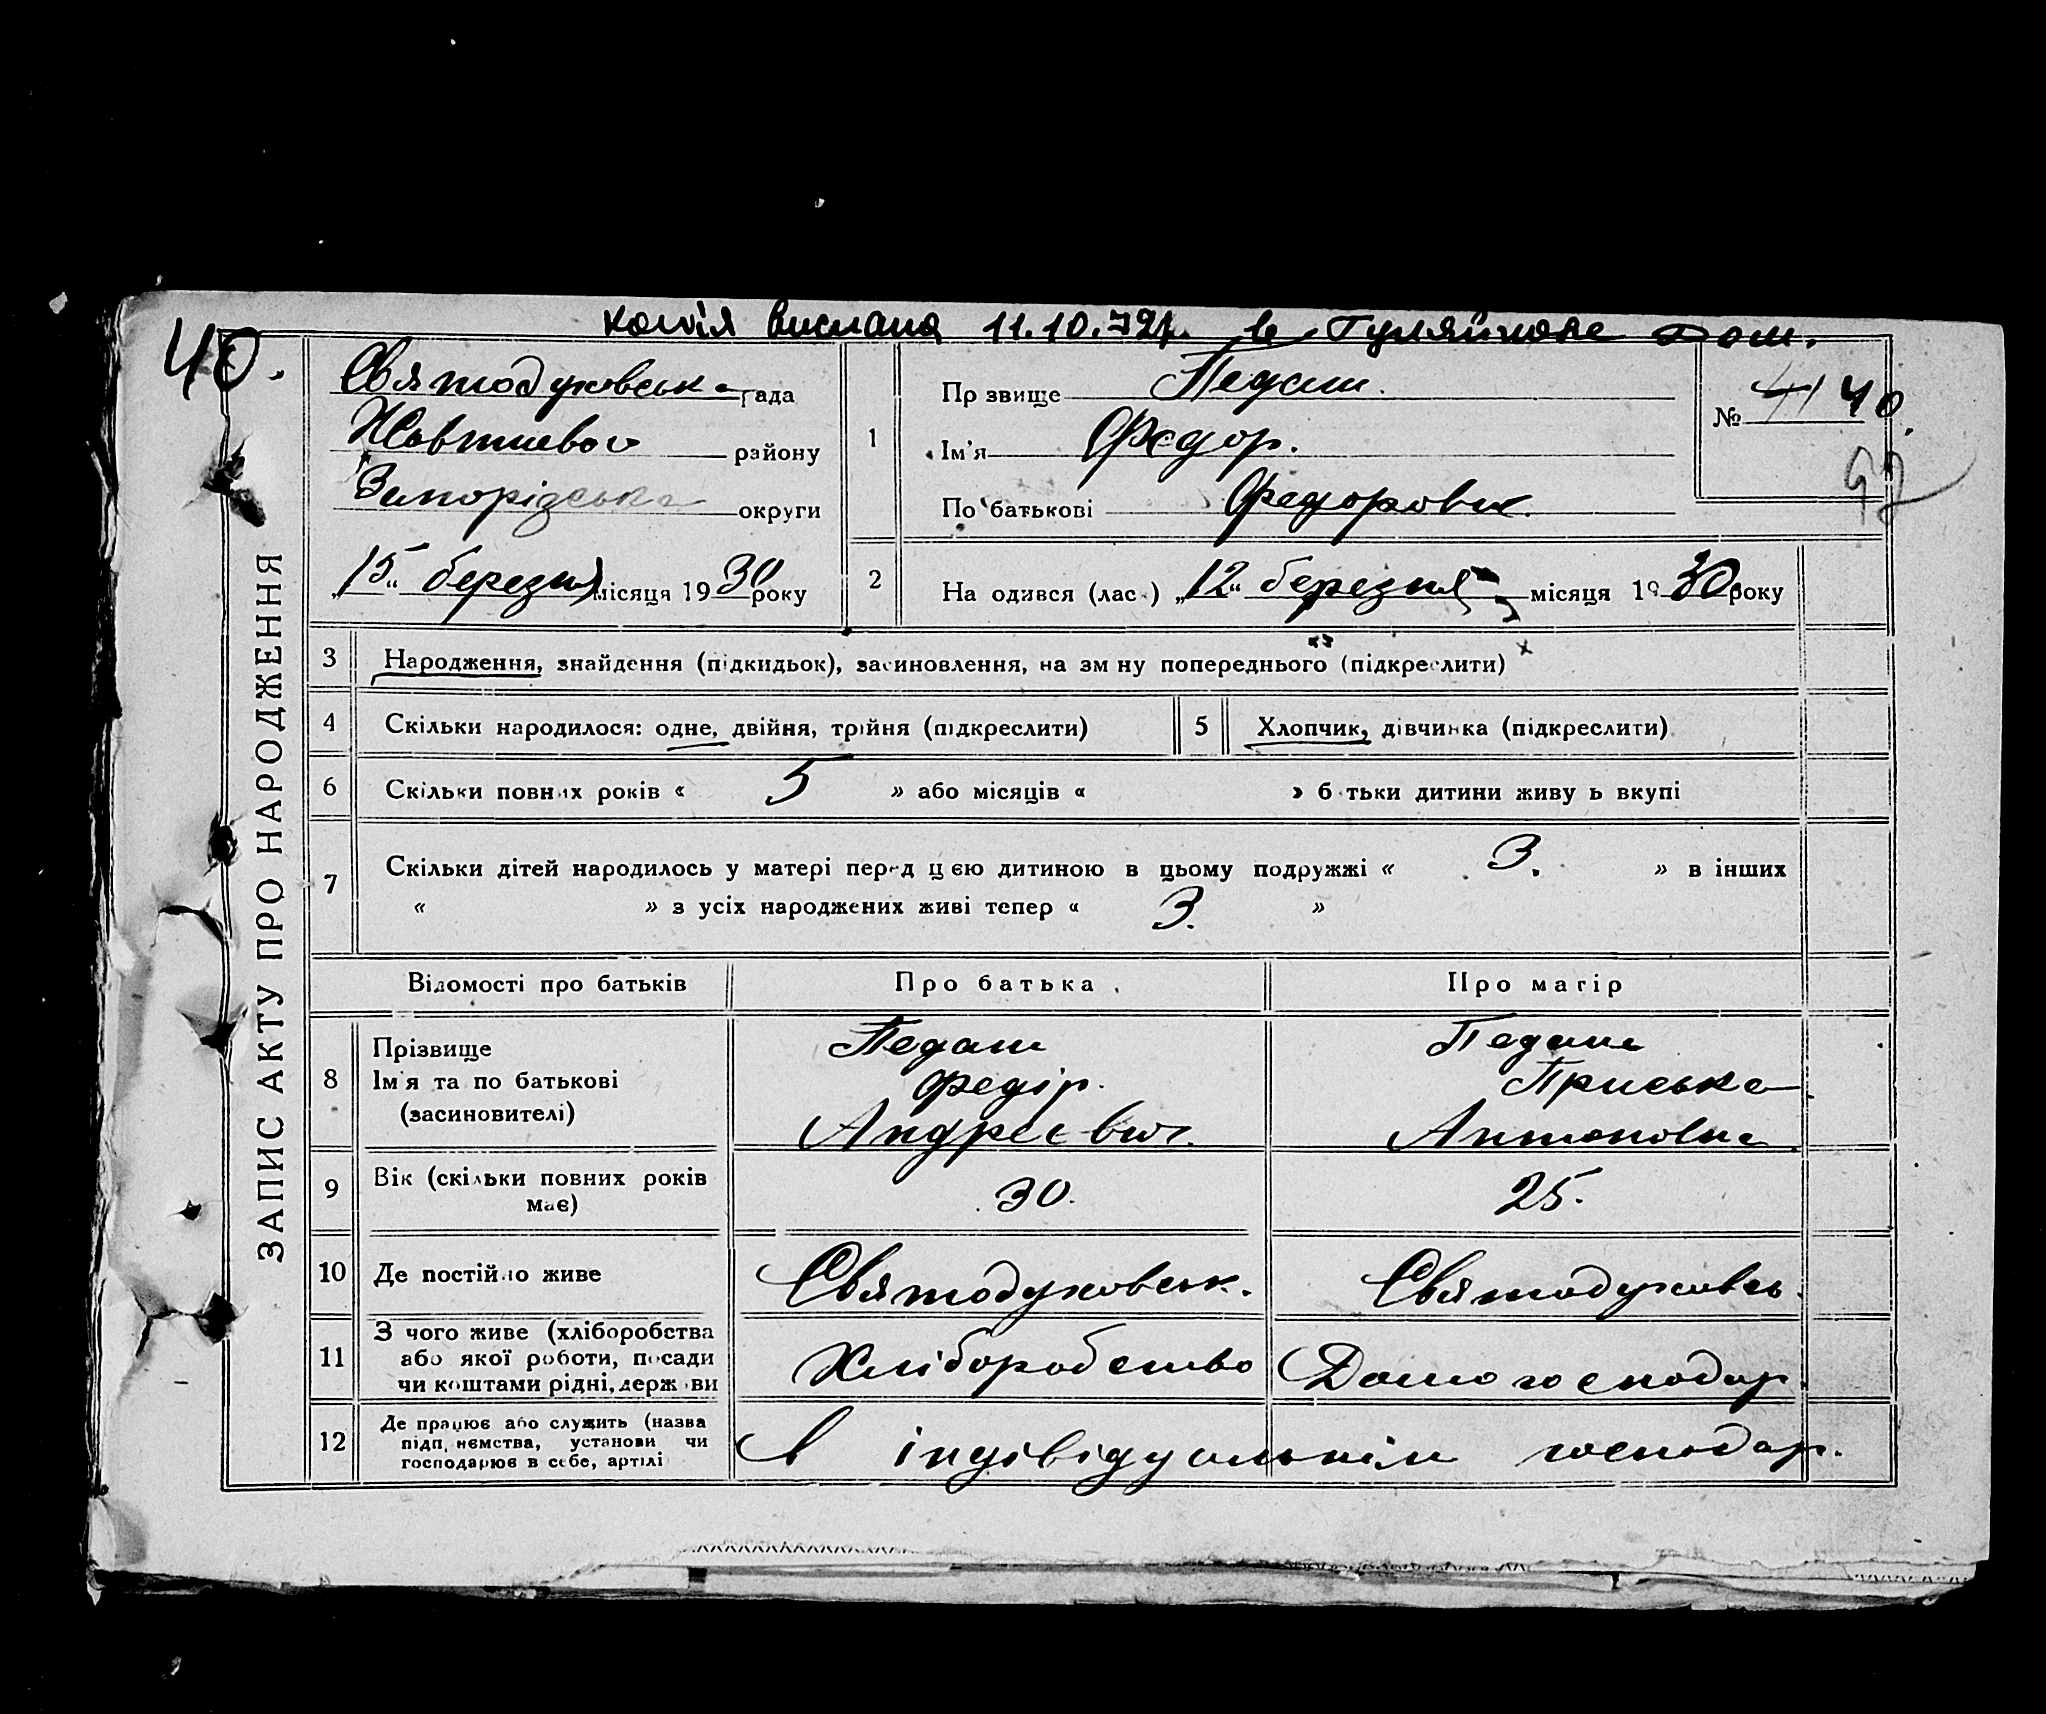 копія вислана 11.10.72р. в Гуляйполе Дом.
40.
ЗАПИС АКТУ ПРО НАРОДЖЕННЯ
Святодуховська рада
Жовтневого району
Запорізська округи
„15“ березня місяця 1930 року
1 Прізвище Педаш.
Ім'я Федор.
По батькові Федорович.
№ 41 40.
97
2 Народився (лась) „12“ березня місяця 1930 року
3 Народження, знайдення (підкидьок), засиновлення, на зміну попереднього (підкреслити)
4 Скільки народилося: одне, двійня, трійня (підкреслити) 5 Хлопчик, дівчинка (підкреслити)
6 Скільки повних років « 5 » або місяців « » батьки дитини живуть вкупі
7 Скільки дітей народилось у матері перед цією дитиною в цьому подружжі « 3. » в інших
« » з усіх народжених живі тепер « 3. »
Відомості про батьків Про батька Про матір
8 Прізвище Педаш Педаш
Ім'я та по батькові Федір. Приська
(засиновителі) Андрєєвич. Антоновна
9 Вік (скільки повних років має) 30. 25.
10 Де постійно живе Святодуховськ. Святодуховсь.
11 З чого живе (хліборобства
або якої роботи, посади Хліборобство Домогосподар.
чи коштами рідні, держави
12 Де працює або служить (назва
підпиємства, установи чи в індівідуальнім господар.
господарює в себе, артілі